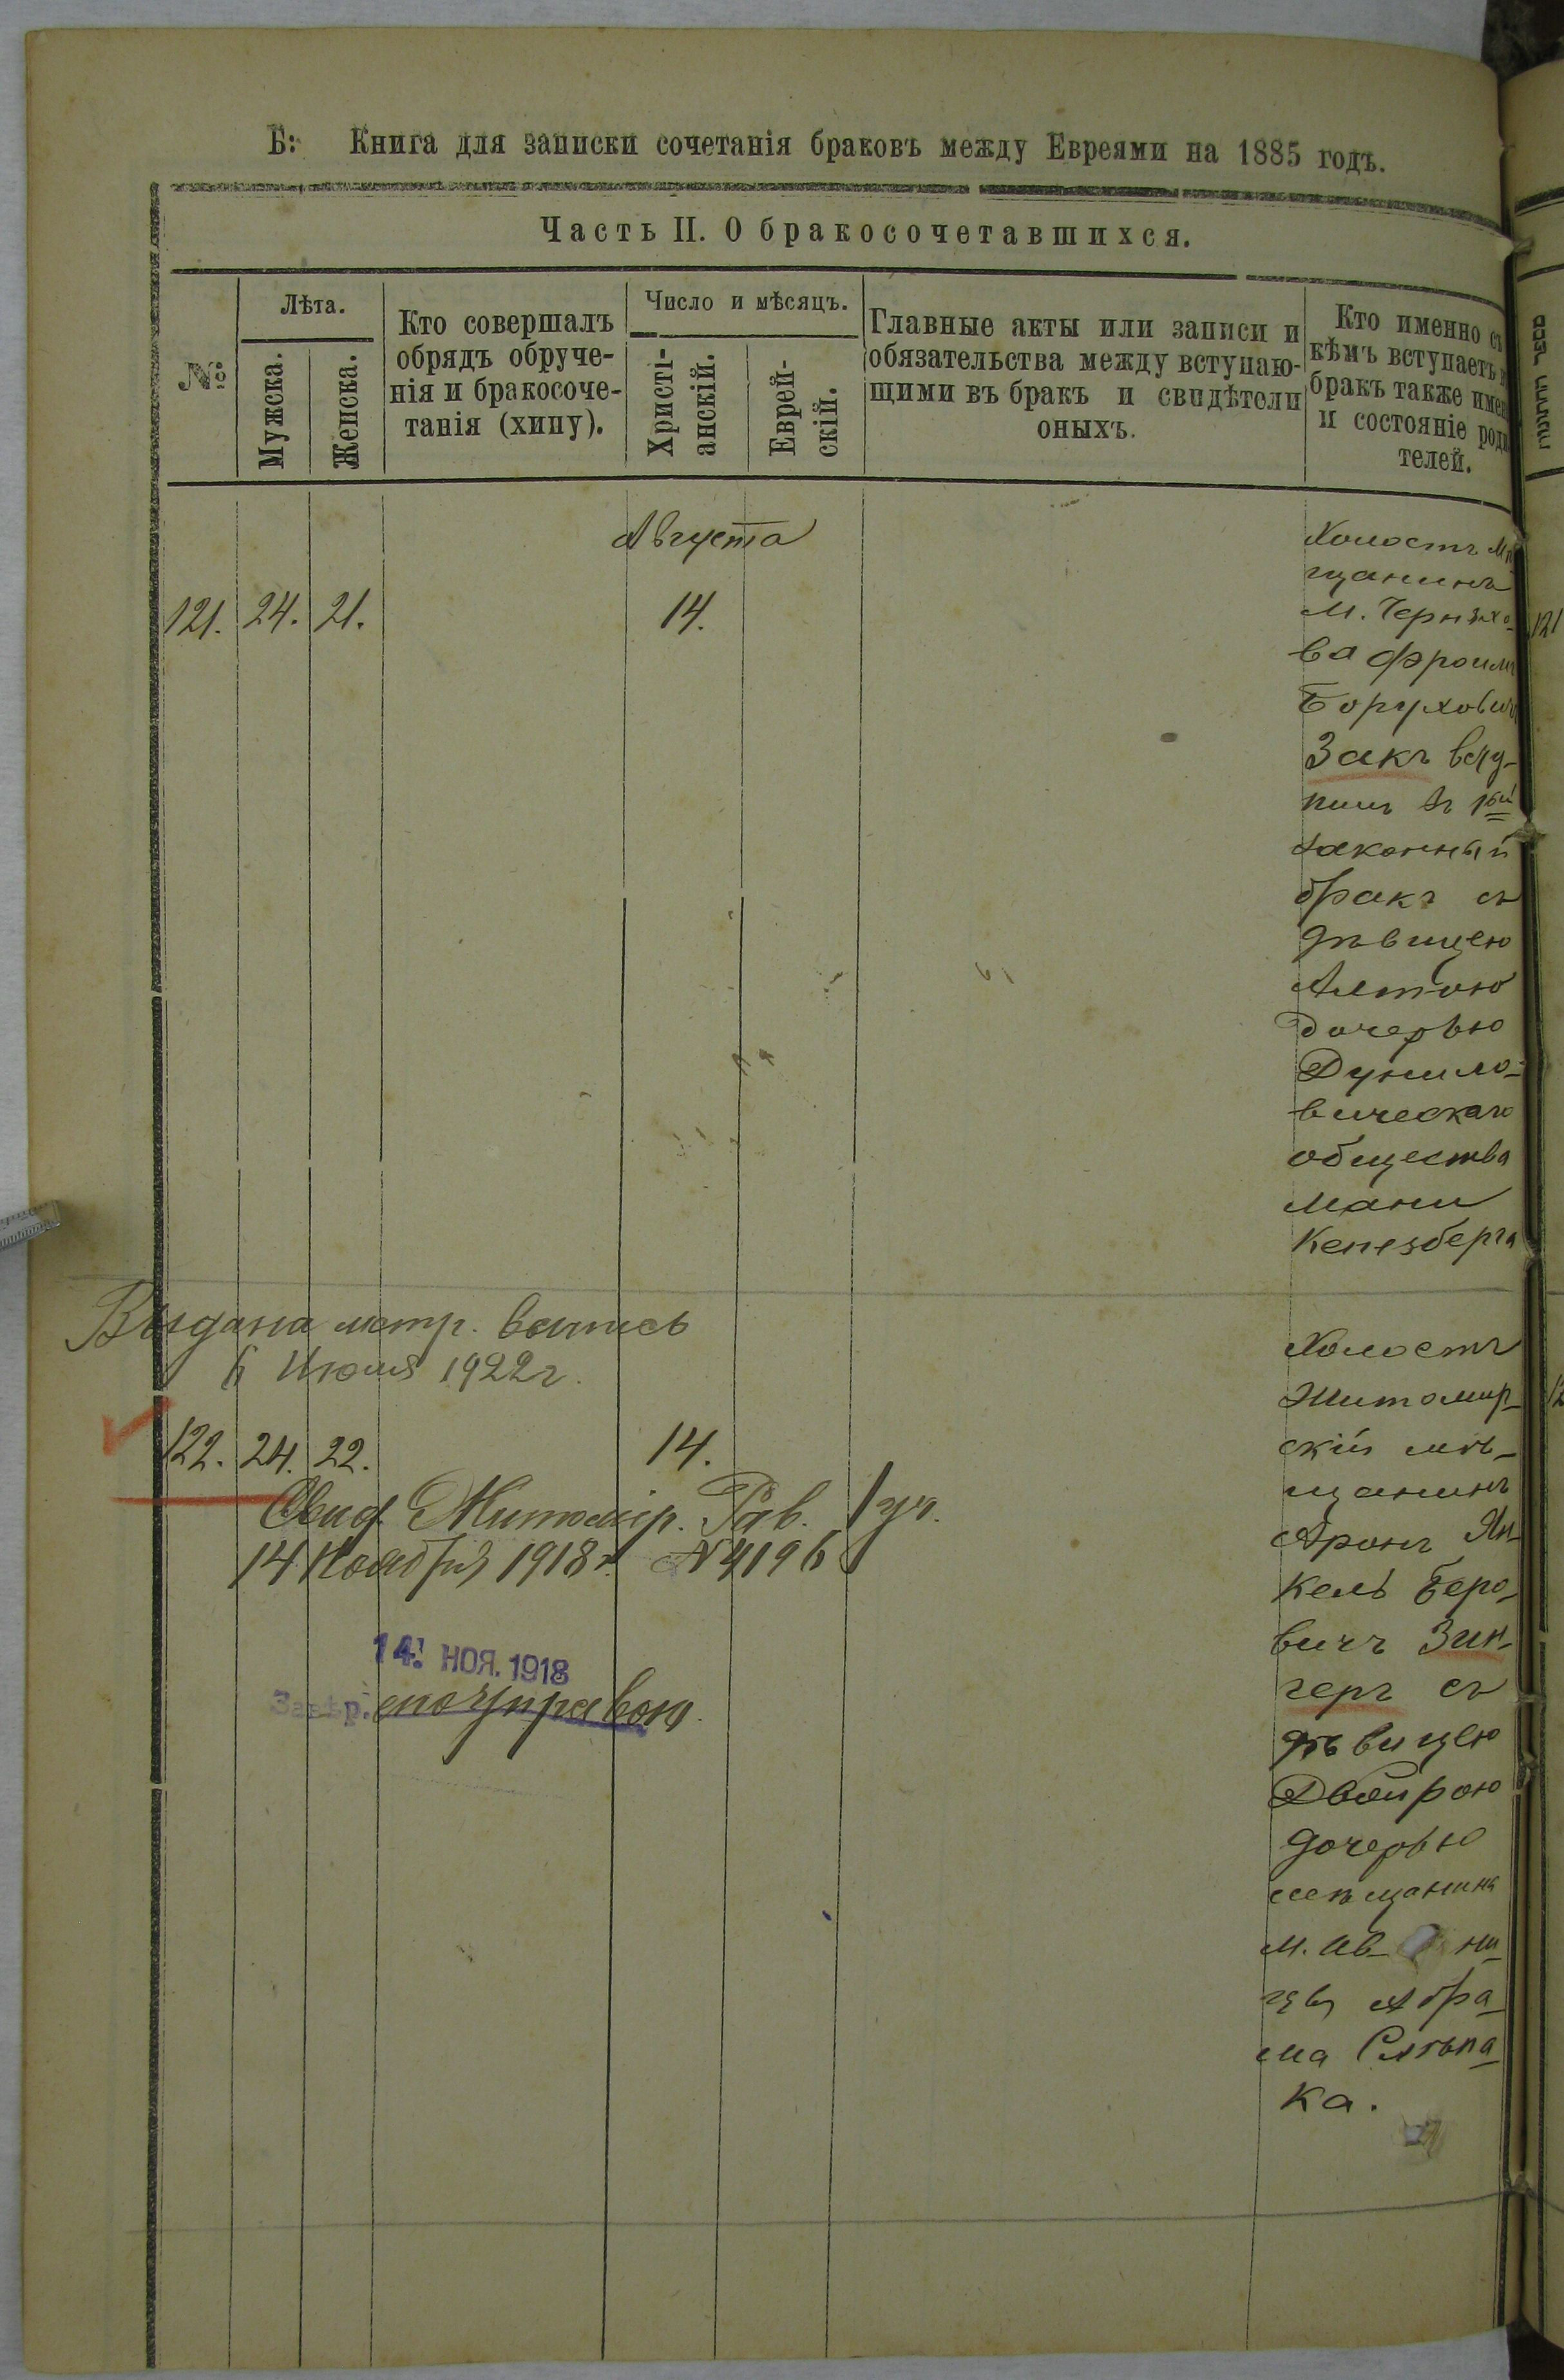 Б: Книга для записки сочетанія браковъ между Евреями на 1885 годъ.
Часть II. О бракосочетавшихся.
№
Лѣта.
Мужска.
Женска.
Кто совершалъ
обрядъ обруче-
нія и бракосоче-
танія (хипу).
Число и мѣсяцъ.
Христі-
анскій.
Еврей-
скій.
Главные акты или записи и
обязательства между вступаю-
щими въ бракъ и свидѣтели
оныхъ.
Кто именно съ
кѣмъ вступаетъ
бракъ также име
и состояніе роди
телей.
Августа
121. 24. 21. 14.
Холостъ мѣ
щанинъ
М. Черняхо-
ва Фроимъ
Боруховичъ
Закъ всту-
пилъ въ 1ый
законный
бракъ съ
дѣвицею
Алтою
дочерью
Дунило-
вическаго
общества
Мани
Кенезберга
Выдана метр. выпись
6 Июля 1922г.
122. 24. 22. 14.
Свид. Житомір. Рав. 1 уч.
14 Ноября 1918 г. № 4196
14. НОЯ. 1918
Холостъ
Житомир-
скій мѣ-
щанинъ
Аронъ Ян-
кель Беро-
вичъ Зин-
геръ съ
дѣвицею
Двойрою
дочерью
мѣщанина
М. Ив ни
цы Абра-
ма Слѣпа-
ка.
121
12